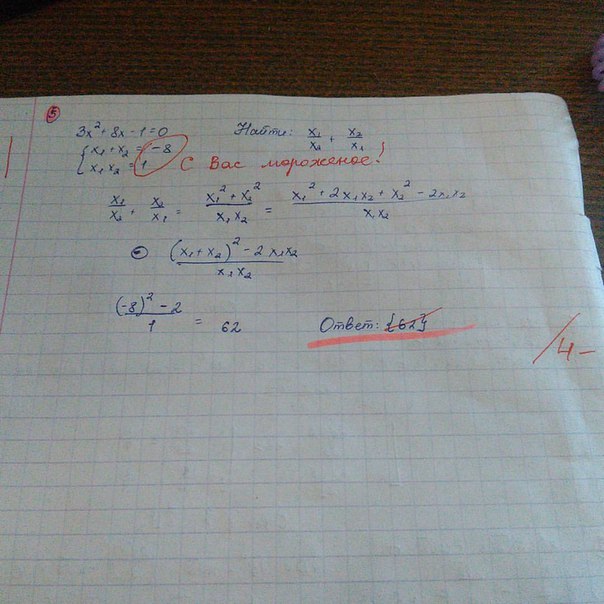 5
3x² + 8x - 1 = 0 Найти: x₁/x₂ + x₂/x₁
{ x₁ + x₂ = -8
x₁ x₂ = 1 С Вас мороженое!
x₁/x₂ + x₂/x₁ = (x₁² + x₂²)/(x₁ x₂) = (x₁² + 2x₁x₂ + x₂² - 2x₁x₂)/(x₁x₂)
= ((x₁ + x₂)² - 2x₁x₂)/(x₁x₂)
((-8)² - 2)/1 = 62 Ответ: {62}
4-